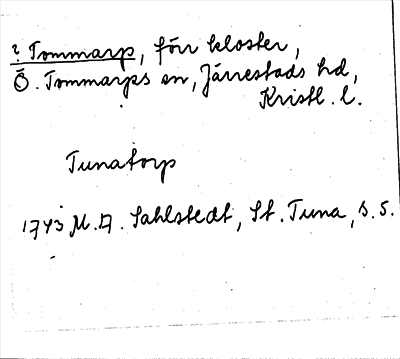 ? Tommarp, förr kloster,
Ö. Tommarps sn, Järrestads hd,
Kristl. l.
Tunatorp
1743 M. A. Sahlstedt, St. Tuna, s. 5.